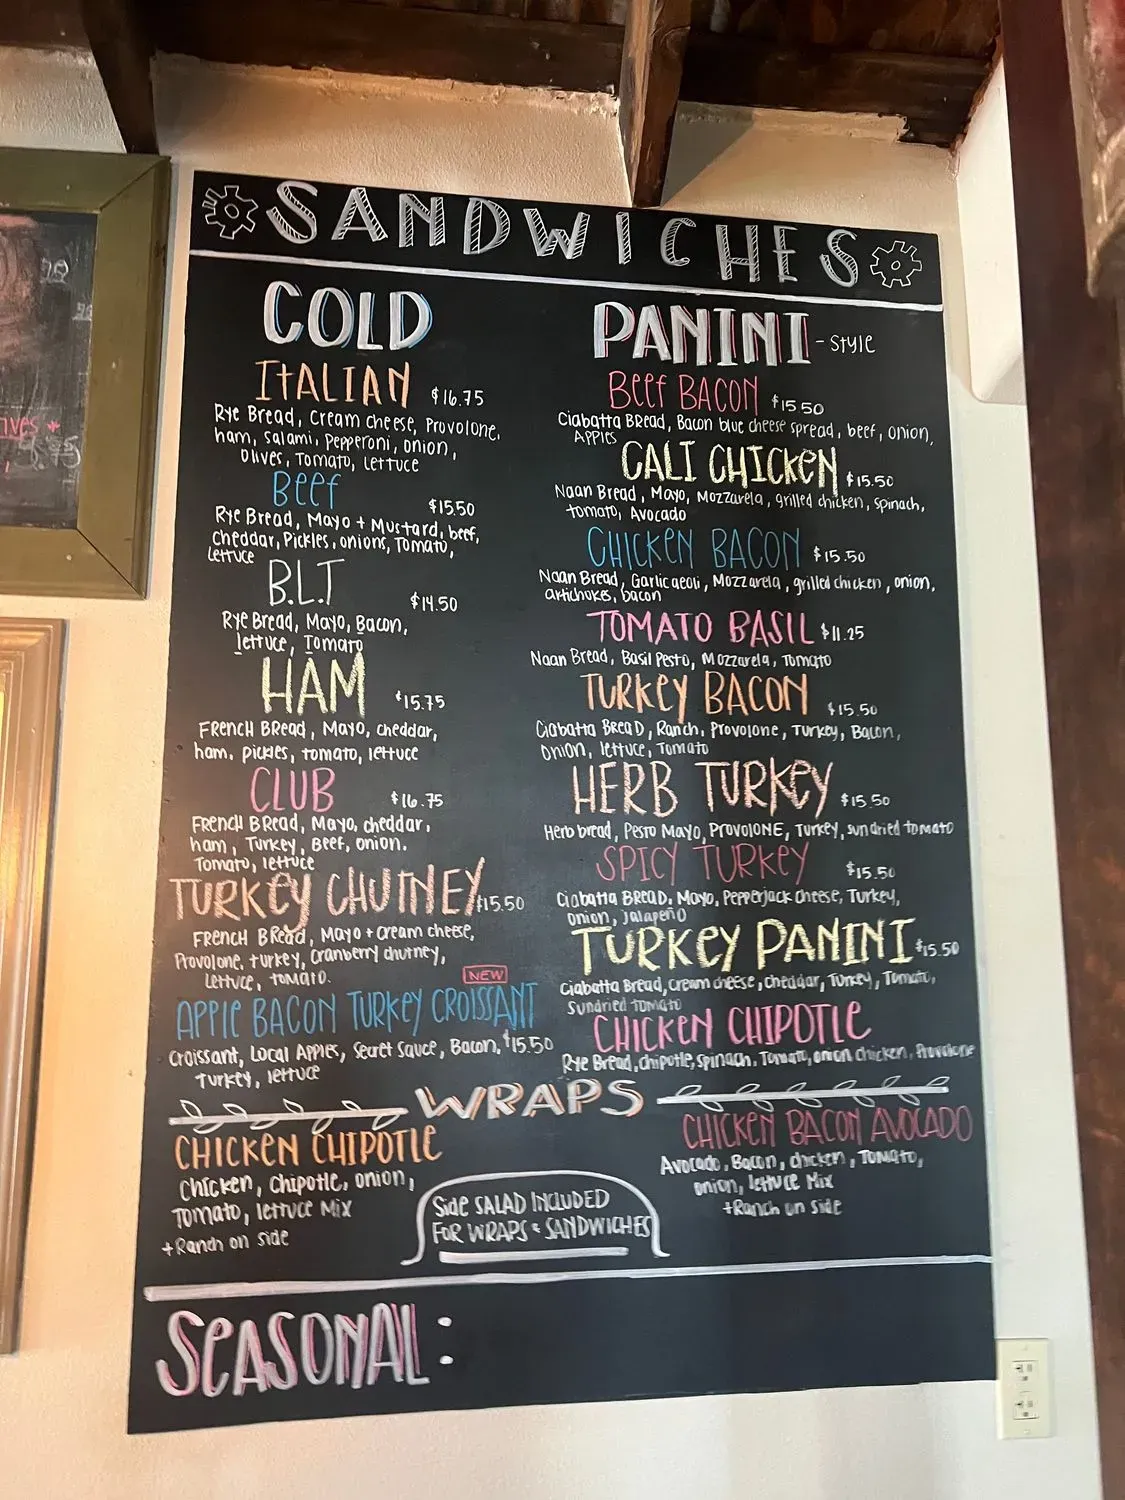 SANDWICHES
COLD
ITALIAN $16.75
Rye Bread, Cream cheese, Provolone,
ham, salami, Pepperoni, onion,
Olives, Tomato, Lettuce
Beef $15.50
Rye Bread, Mayo + Mustard, beef,
cheddar, Pickles, onions, Tomato,
Lettuce
B.L.T $14.50
Rye Bread, Mayo, Bacon,
lettuce, Tomato
HAM $15.75
FRENCH BRead, Mayo, cheddar,
ham, pickles, tomato, lettuce
CLUB $16.75
FRENCH BRead, Mayo, cheddar,
ham, Turkey, Beef, onion.
Tomato, lettuce
TURKEY CHUTNEY $15.50
FRENCH BRead, Mayo + cream cheese,
Provolone, turkey, cranberry chutney,
lettuce, tomato.
NEW
APPLE BACON TURKEY CROISSANT
Croissant, Local Apples, Secret Sauce, Bacon, $15.50
Turkey, lettuce
PANINI - Style
Beef BACON $15.50
Ciabatta BRead, Bacon blue cheese spread, beef, onion,
APPLES
CALI CHICKEN $15.50
Naan Bread, Mayo, Mozzarela, grilled chicken, spinach,
tomato, Avocado
CHICKEN BACON $15.50
Naan Bread, Garlic aeoli, Mozzarela, grilled chicken, onion,
artichokes, bacon
TOMATO BASIL $11.25
Naan Bread, Basil Pesto, Mozzarela, Tomato
TURKEY BACON $15.50
Ciabatta BReaD, Ranch, Provolone, Turkey, Bacon,
Onion, lettuce, Tomato
HERB TURKEY $15.50
Herb bread, Pesto Mayo, PROVOLONE, Turkey, sun dried tomato
SPICY TURKEY $15.50
Ciabatta BREAD, Mayo, Pepperjack cheese, Turkey,
Onion, Jalapeño
TURKEY PANINI $15.50
Ciabatta Bread, cream cheese, cheddar, Turkey, Tomato,
Sundried Tomato
CHICKEN CHIPOTLE
Rye Bread, chipotle, spinach, Tomato, onion chicken, Provolone
WRAPS
CHICKEN CHIPOTLE
Chicken, chipotle, onion,
Tomato, lettuce Mix
+Ranch on side
Side SALAD INCLUDED
FOR WRAPS & SANDWICHES
CHICKEN BACON AVOCADO
Avocado, Bacon, chicken, Tomato,
onion, lettuce Mix
+Ranch on side
SeASONAL: